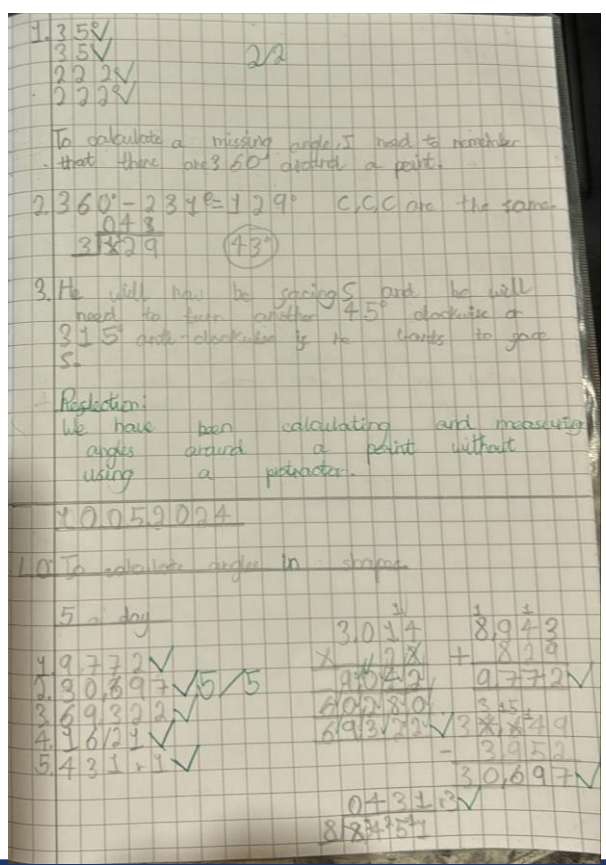 1. 35°
35
222
222°
2/2
To calculate a missing angle, I need to remember
that there are 360° around a point.
2. 360° - 231° = 129° C, C, C are the same.
043
3 129 43°
3. He will now be facing S and he will
need to turn another 45° clockwise or
315° anti-clockwise is he wants to
S.
Reflection:
We have been calculating and measuring
angles around a point without
using a protractor.
10052024
L.O: To calculate angles in shapes.
5 a day
1. 9,772
2. 30,697 5/5
3. 69,322
4.
5. 431
3,014
9,042
60280
69322
8,943
+ 829
9,772
- 3952
30,697
0431